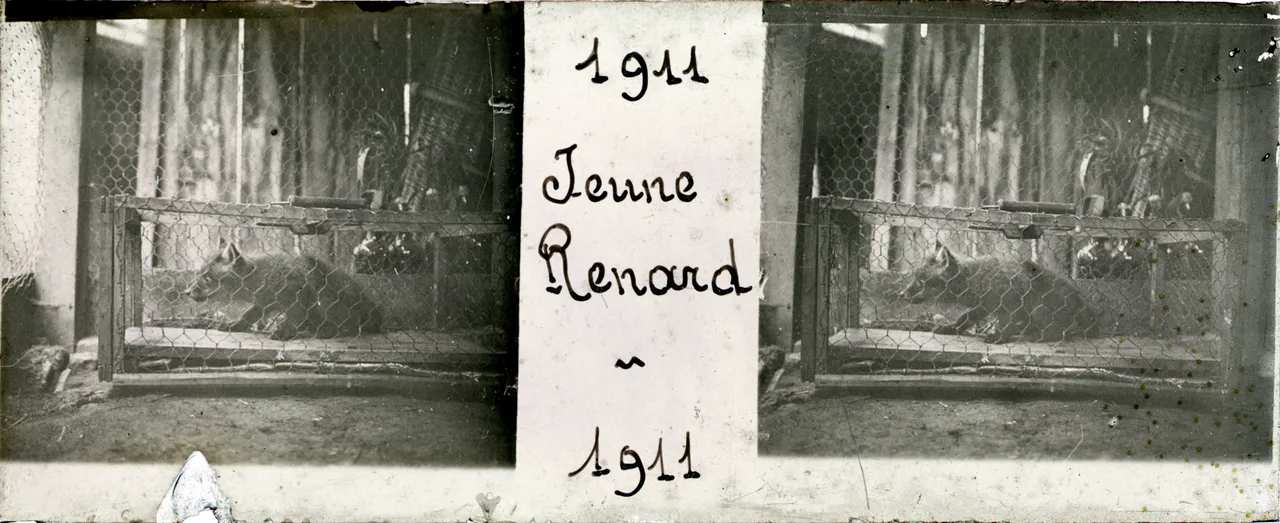 1911
Jeune
Renard
~
1911